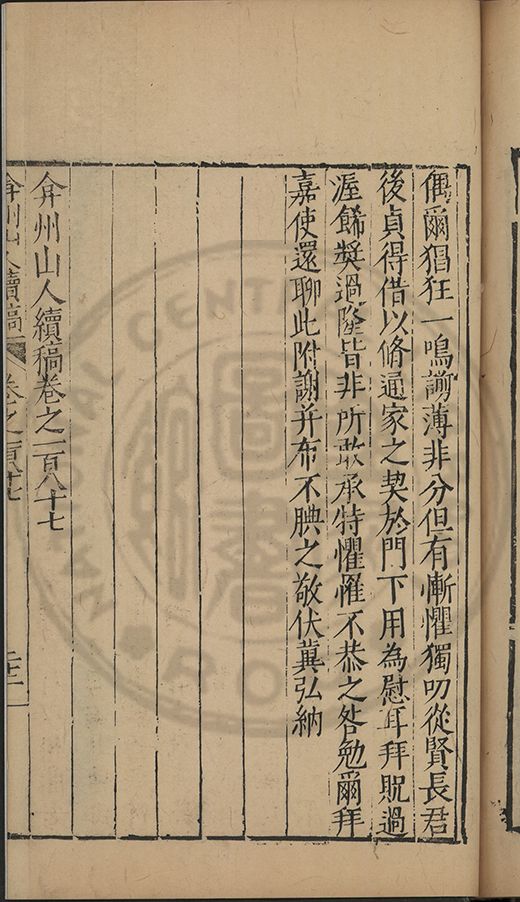 偶爾猖狂一鳴謭薄非分但有慚懼獨叨從賢長君
後貞得借以脩通家之契於門下用為慰耳拜貺過
渥餙獎過隆皆非所敢承特懼罹不恭之咎勉爾拜
嘉使還聊此附謝并布不腆之敬伏冀弘納
弇州山人續稿卷之一百八十七
弇州山人續稿 卷之一百八十七